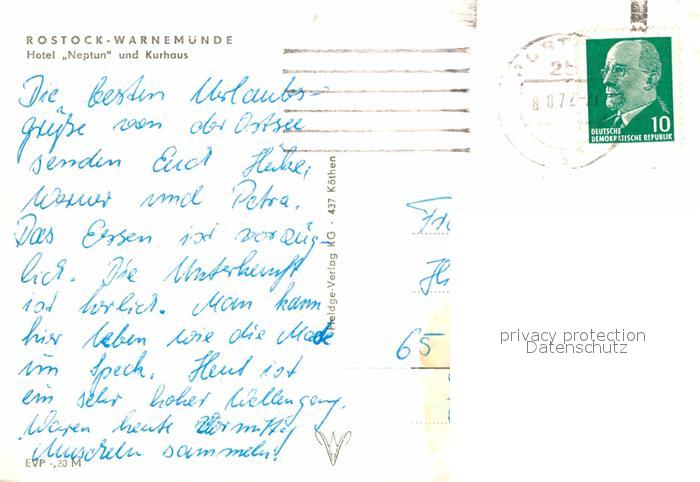 ROSTOCK-WARNEMÜNDE
Hotel „Neptun" und Kurhaus
Die besten Urlaubs-
grüße von der Ostsee
senden Euch
Werner und Petra.
Das Essen ist vorzüg-
lich. Die Unterkunft
ist herlich. Man kann
hier leben wie die Made
im Speck. Heut ist
ein sehr hoher Wellengang.
Waren heute Vormittag
Muscheln sammeln.
EVP -,20 M
Heldge-Verlag KG · 437 Köthen
8.8.7
10
DEUTSCHE
DEMOKRATISCHE REPUBLIK
65
privacy protection
Datenschutz